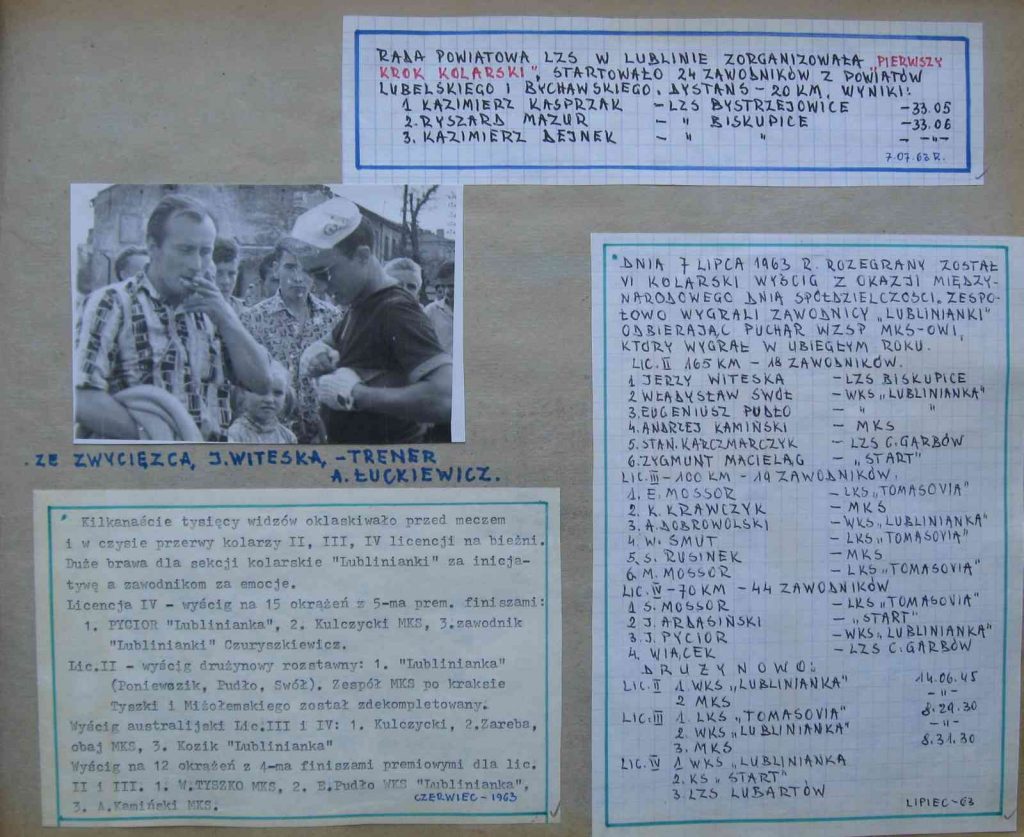 RADA POWIATOWA LZS W LUBLINIE ZORGANIZOWAŁA „PIERWSZY
KROK KOLARSKI", STARTOWAŁO 24 ZAWODNIKÓW Z POWIATÓW
LUBELSKIEGO I BYCHAWSKIEGO. DYSTANS – 20 KM. WYNIKI:
1 KAZIMIERZ KASPRZAK – LZS BYSTRZEJOWICE – 33.05
2. RYSZARD MAZUR – " BISKUPICE – 33.06
3. KAZIMIERZ DEJNEK – " " – –"–
7.07.63 R.
. ZE ZWYCIĘZCĄ, J. WITESKĄ, – TRENER
A. ŁUCKIEWICZ.
Kilkanaście tysięcy widzów oklaskiwało przed meczem
i w czysie przerwy kolarzy II, III, IV licencji na bieżni.
Duże brawa dla sekcji kolarskie "Lublinianki" za inicja-
tywę a zawodnikom za emocje.
Licencja IV – wyścig na 15 okrążeń z 5-ma prem. finiszami:
1. PYCIOR "Lublinianka", 2. Kulczycki MKS, 3.zawodnik
"Lublinianki" Czuryszkiewicz.
Lic.II – wyścig drużynowy rozstawny: 1. "Lublinianka"
(Poniewozik, Pudło, Swół). Zespół MKS po kraksie
Tyszki i Miżołemskiego został zdekompletowany.
Wyścig australijski Lic.III i IV: 1. Kulczycki, 2.Zareba,
obaj MKS, 3. Kozik "Lublinianka"
Wyścig na 12 okrążeń z 4-ma finiszami premiowymi dla lic.
II i III. 1. W.TYSZKO MKS, 2. E.Pudło WKS "Lublinianka",
3. A.Kamiński MKS.
CZERWIEC – 1963
DNIA 7 LIPCA 1963 R. ROZEGRANY ZOSTAŁ
VI KOLARSKI WYŚCIG Z OKAZJI MIĘDZY-
NARODOWEGO DNIA SPÓŁDZIELCZOŚCI. ZESPO-
ŁOWO WYGRALI ZAWODNICY „LUBLINIANKI"
ODBIERAJĄC PUCHAR WZSP MKS-OWI,
KTÓRY WYGRAŁ W UBIEGŁYM ROKU.
LIC. II 165 KM – 18 ZAWODNIKÓW.
1 JERZY WITESKA – LZS BISKUPICE
2 WŁADYSŁAW SWÓŁ – WKS „LUBLINIANKA"
3. EUGENIUSZ PUDŁO – " "
4. ANDRZEJ KAMIŃSKI – MKS
5. STAN. KARCZMARCZYK – LZS C. GARBÓW
6. ZYGMUNT MACIELĄG – „START"
LIC. III – 100 KM – 19 ZAWODNIKÓW.
1. E. MOSSOR – LKS „TOMASOVIA"
2. K. KRAWCZYK – MKS
3. A. DOBROWOLSKI – WKS „LUBLINIANKA"
4. W. SMUT – LKS „TOMASOVIA"
5. S. RUSINEK – MKS
6. M. MOSSOR – LKS „TOMASOVIA"
LIC. IV – 70 KM – 44 ZAWODNIKÓW
1 S. MOSSOR – LKS „TOMASOVIA"
2 J. ARBASIŃSKI – „START"
3. J. PYCIOR – WKS „LUBLINIANKA"
4. WIĄCEK – LZS C. GARBÓW
DRUŻYNOWO:
LIC. II 1. WKS „LUBLINIANKA" 14.06.45
2 MKS –"–
LIC. III 1. LKS „TOMASOVIA" 8.29.30
2. WKS „LUBLINIANKA" –"–
3. MKS 8.31.30
LIC. IV 1 WKS „LUBLINIANKA
2. KS „START"
3. LZS LUBARTÓW
LIPIEC – 63